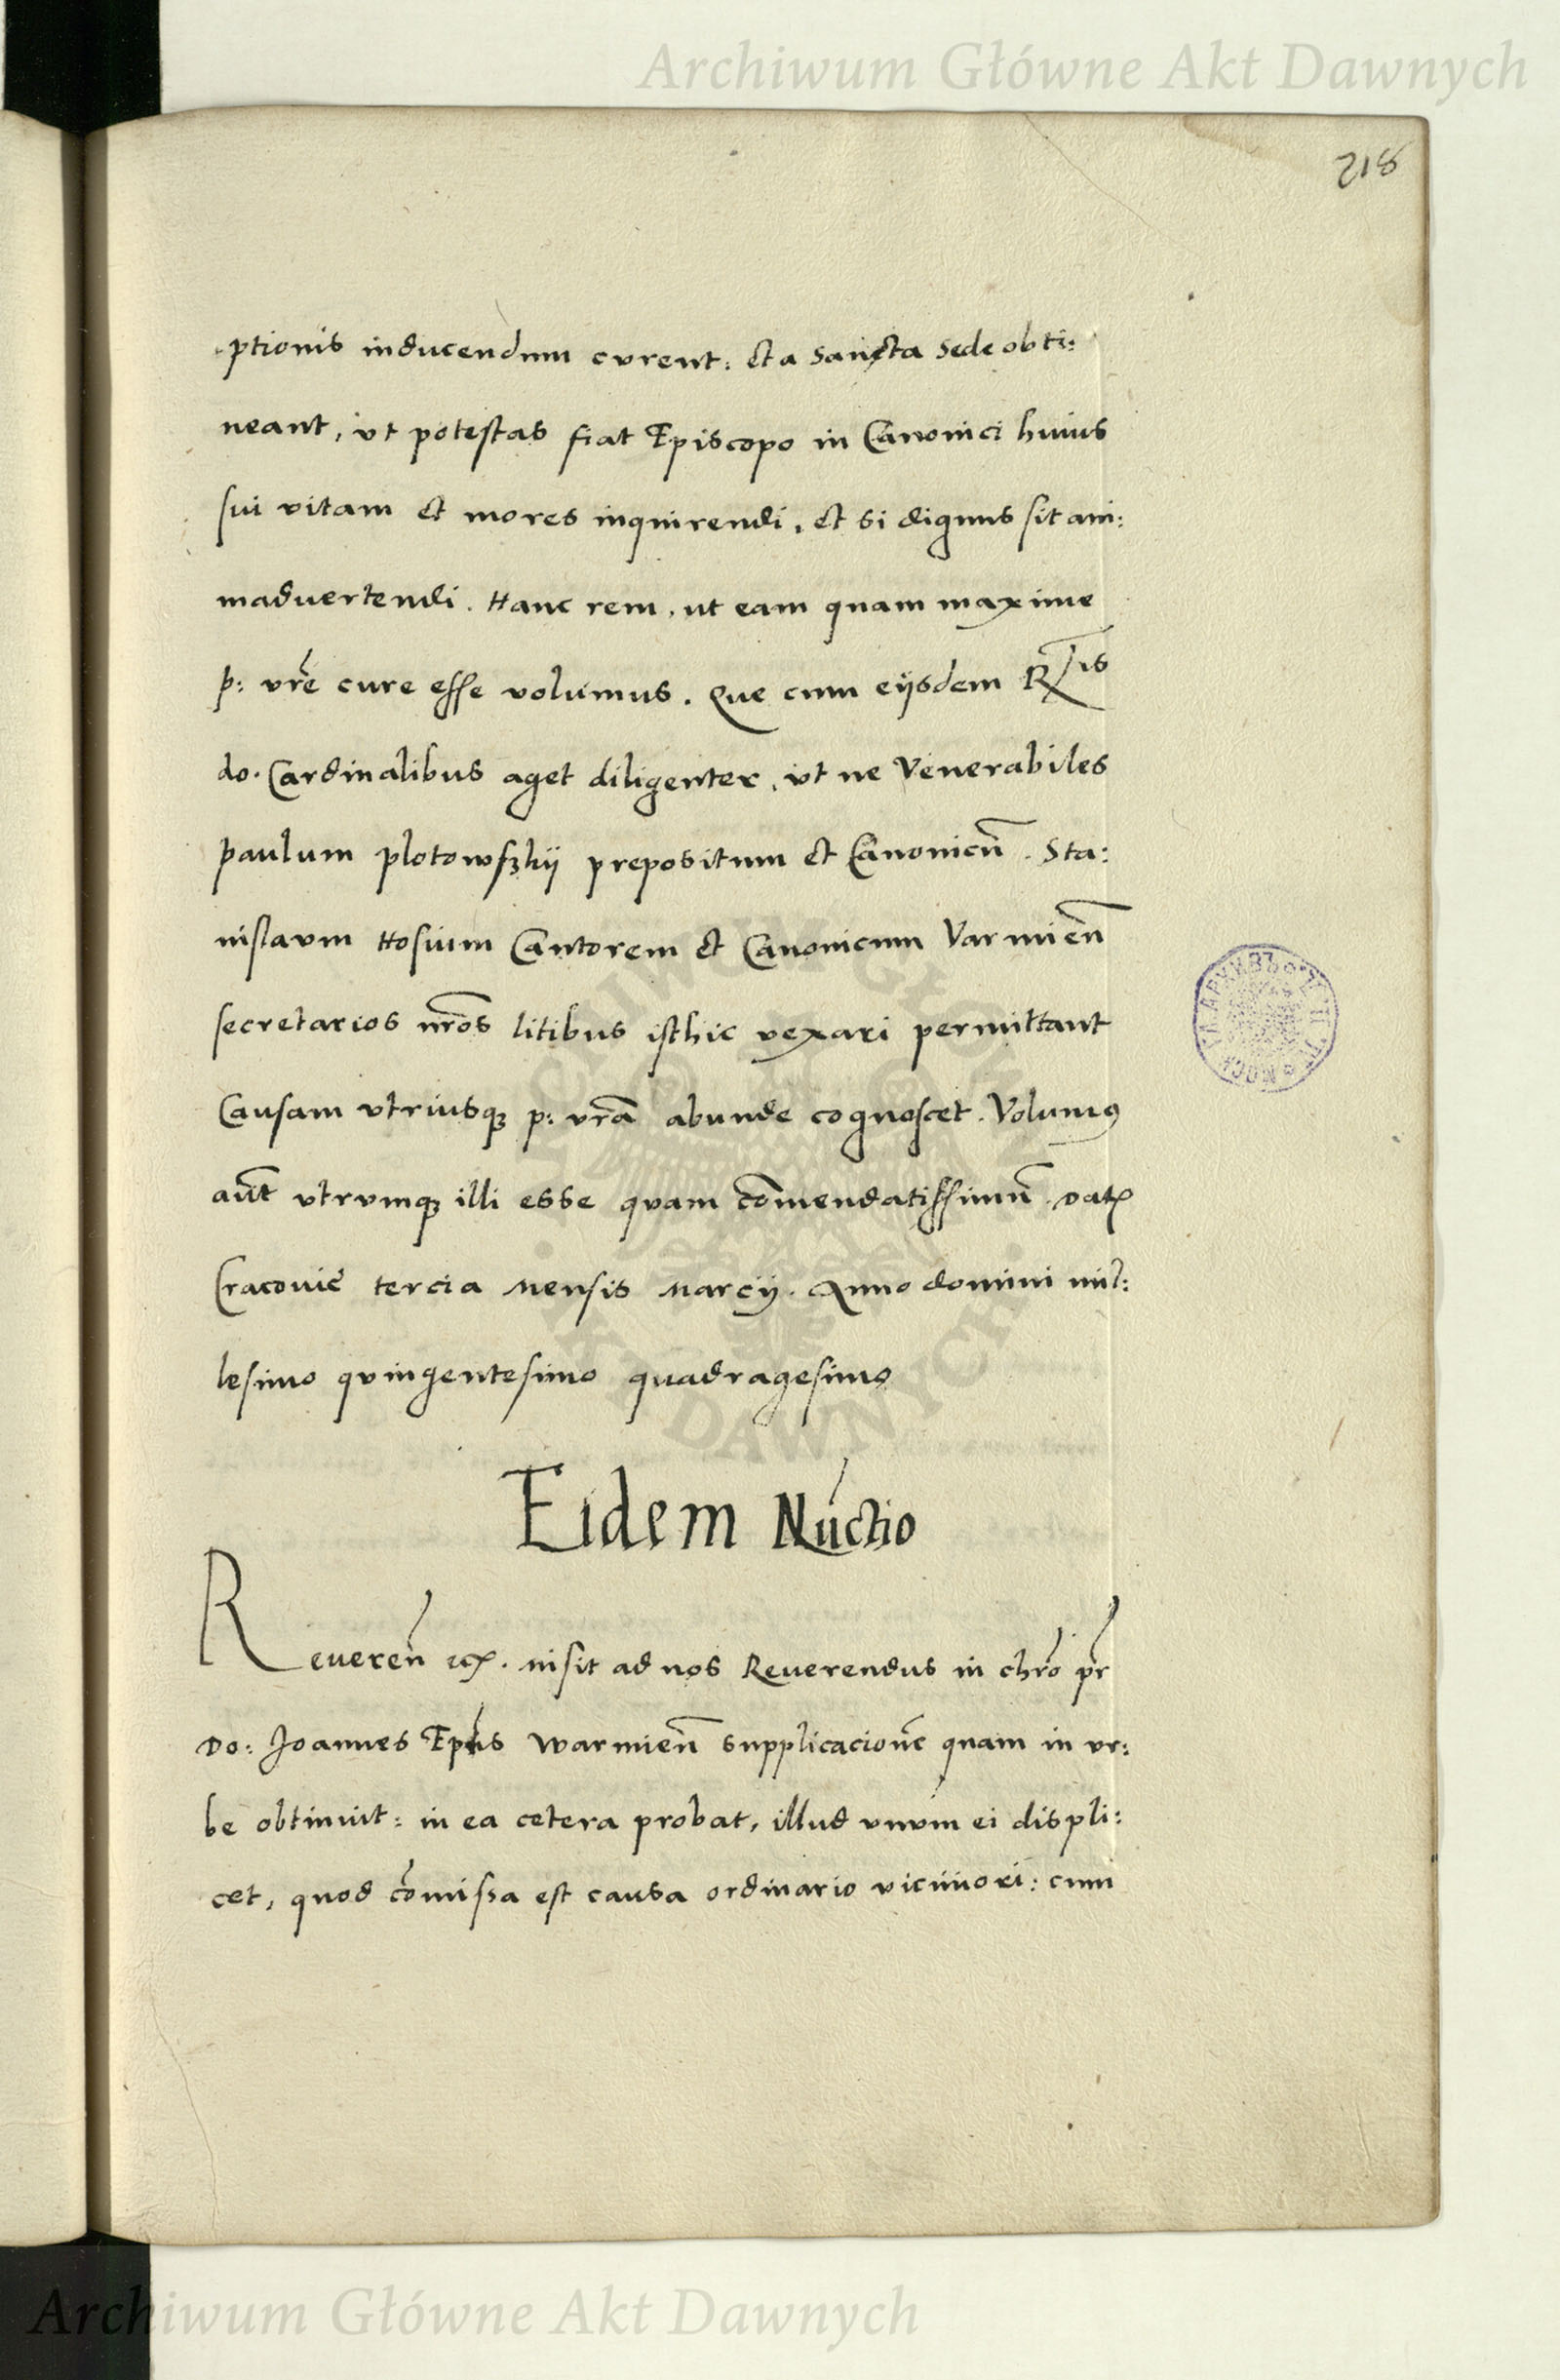 Archiwum Główne Akt Dawnych
218
ptionis inducendum curent: Et a Sancta Sede obti:
neant, ut potestas fiat Episcopo in Canonici huius
sui vitam et mores inquirendi, et si dignus sit ani:
madvertendi. Hanc rem, ut eam quam maxime
p: vrē cure esse volumus. Que cum eijsdem R^mis
do. Cardinalibus aget diligenter, ut ne Venerabiles
paulum plotowszkij prepositum et Canonicū. Sta:
nislaum Hosium Cantorem et Canonicum Varmieñ
secretarios nr̄os litibus isthic vexari permittant
Causam utriusqȝ p: vr̄a abunde cognoscet. Volumꝰ
aūt utrumqȝ illi esse quam com̄endatissimū. Datꝭ
Cracovie tercia Mensis Marcij. Anno domini mil:
lesimo quingentesimo quadragesimo
Eidem Nuctio
Reverēn etc. Misit ad nos Reverendus in chr̄o pr̄
Do: Joannes Epūs Warmieñ supplicacionē quam in ur:
be obtinuit: in ea cetera probat, illud unum ei displi:
cet, quod com̄issa est causa ordinario viciniori: cum
Archiwum Główne Akt Dawnych